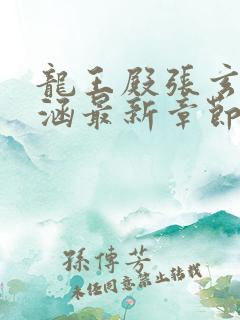 龍王殿張玄
涵最新章節
孫傳芳
未经同意禁止转载